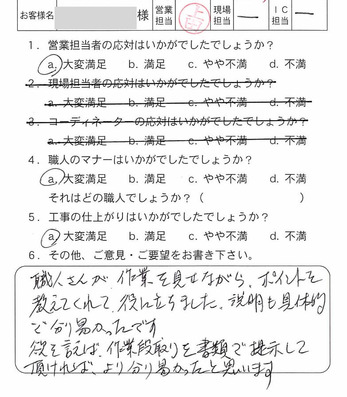 お客様名 様 営業担当 現場担当 一 IC担当 一
1. 営業担当者の応対はいかがでしたでしょうか?
a. 大変満足 b. 満足 c. やや不満 d. 不満
2. 現場担当者の応対はいかがでしたでしょうか?
a. 大変満足 b. 満足 c. やや不満 d. 不満
3. コーディネーターの応対はいかがでしたでしょうか?
a. 大変満足 b. 満足 c. やや不満 d. 不満
4. 職人のマナーはいかがでしたでしょうか?
a. 大変満足 b. 満足 c. やや不満 d. 不満
それはどの職人でしょうか?( )
5. 工事の仕上がりはいかがでしたでしょうか?
a. 大変満足 b. 満足 c. やや不満 d. 不満
6. その他、ご意見・ご要望をお書き下さい。
職人さんが作業を見せながら、ポイントを
教えてくれて、役に立ちました。説明も具体的
で分り易かったです
欲を言えば、作業段取りを書類で提示して
頂ければ、より分り易かったと思います